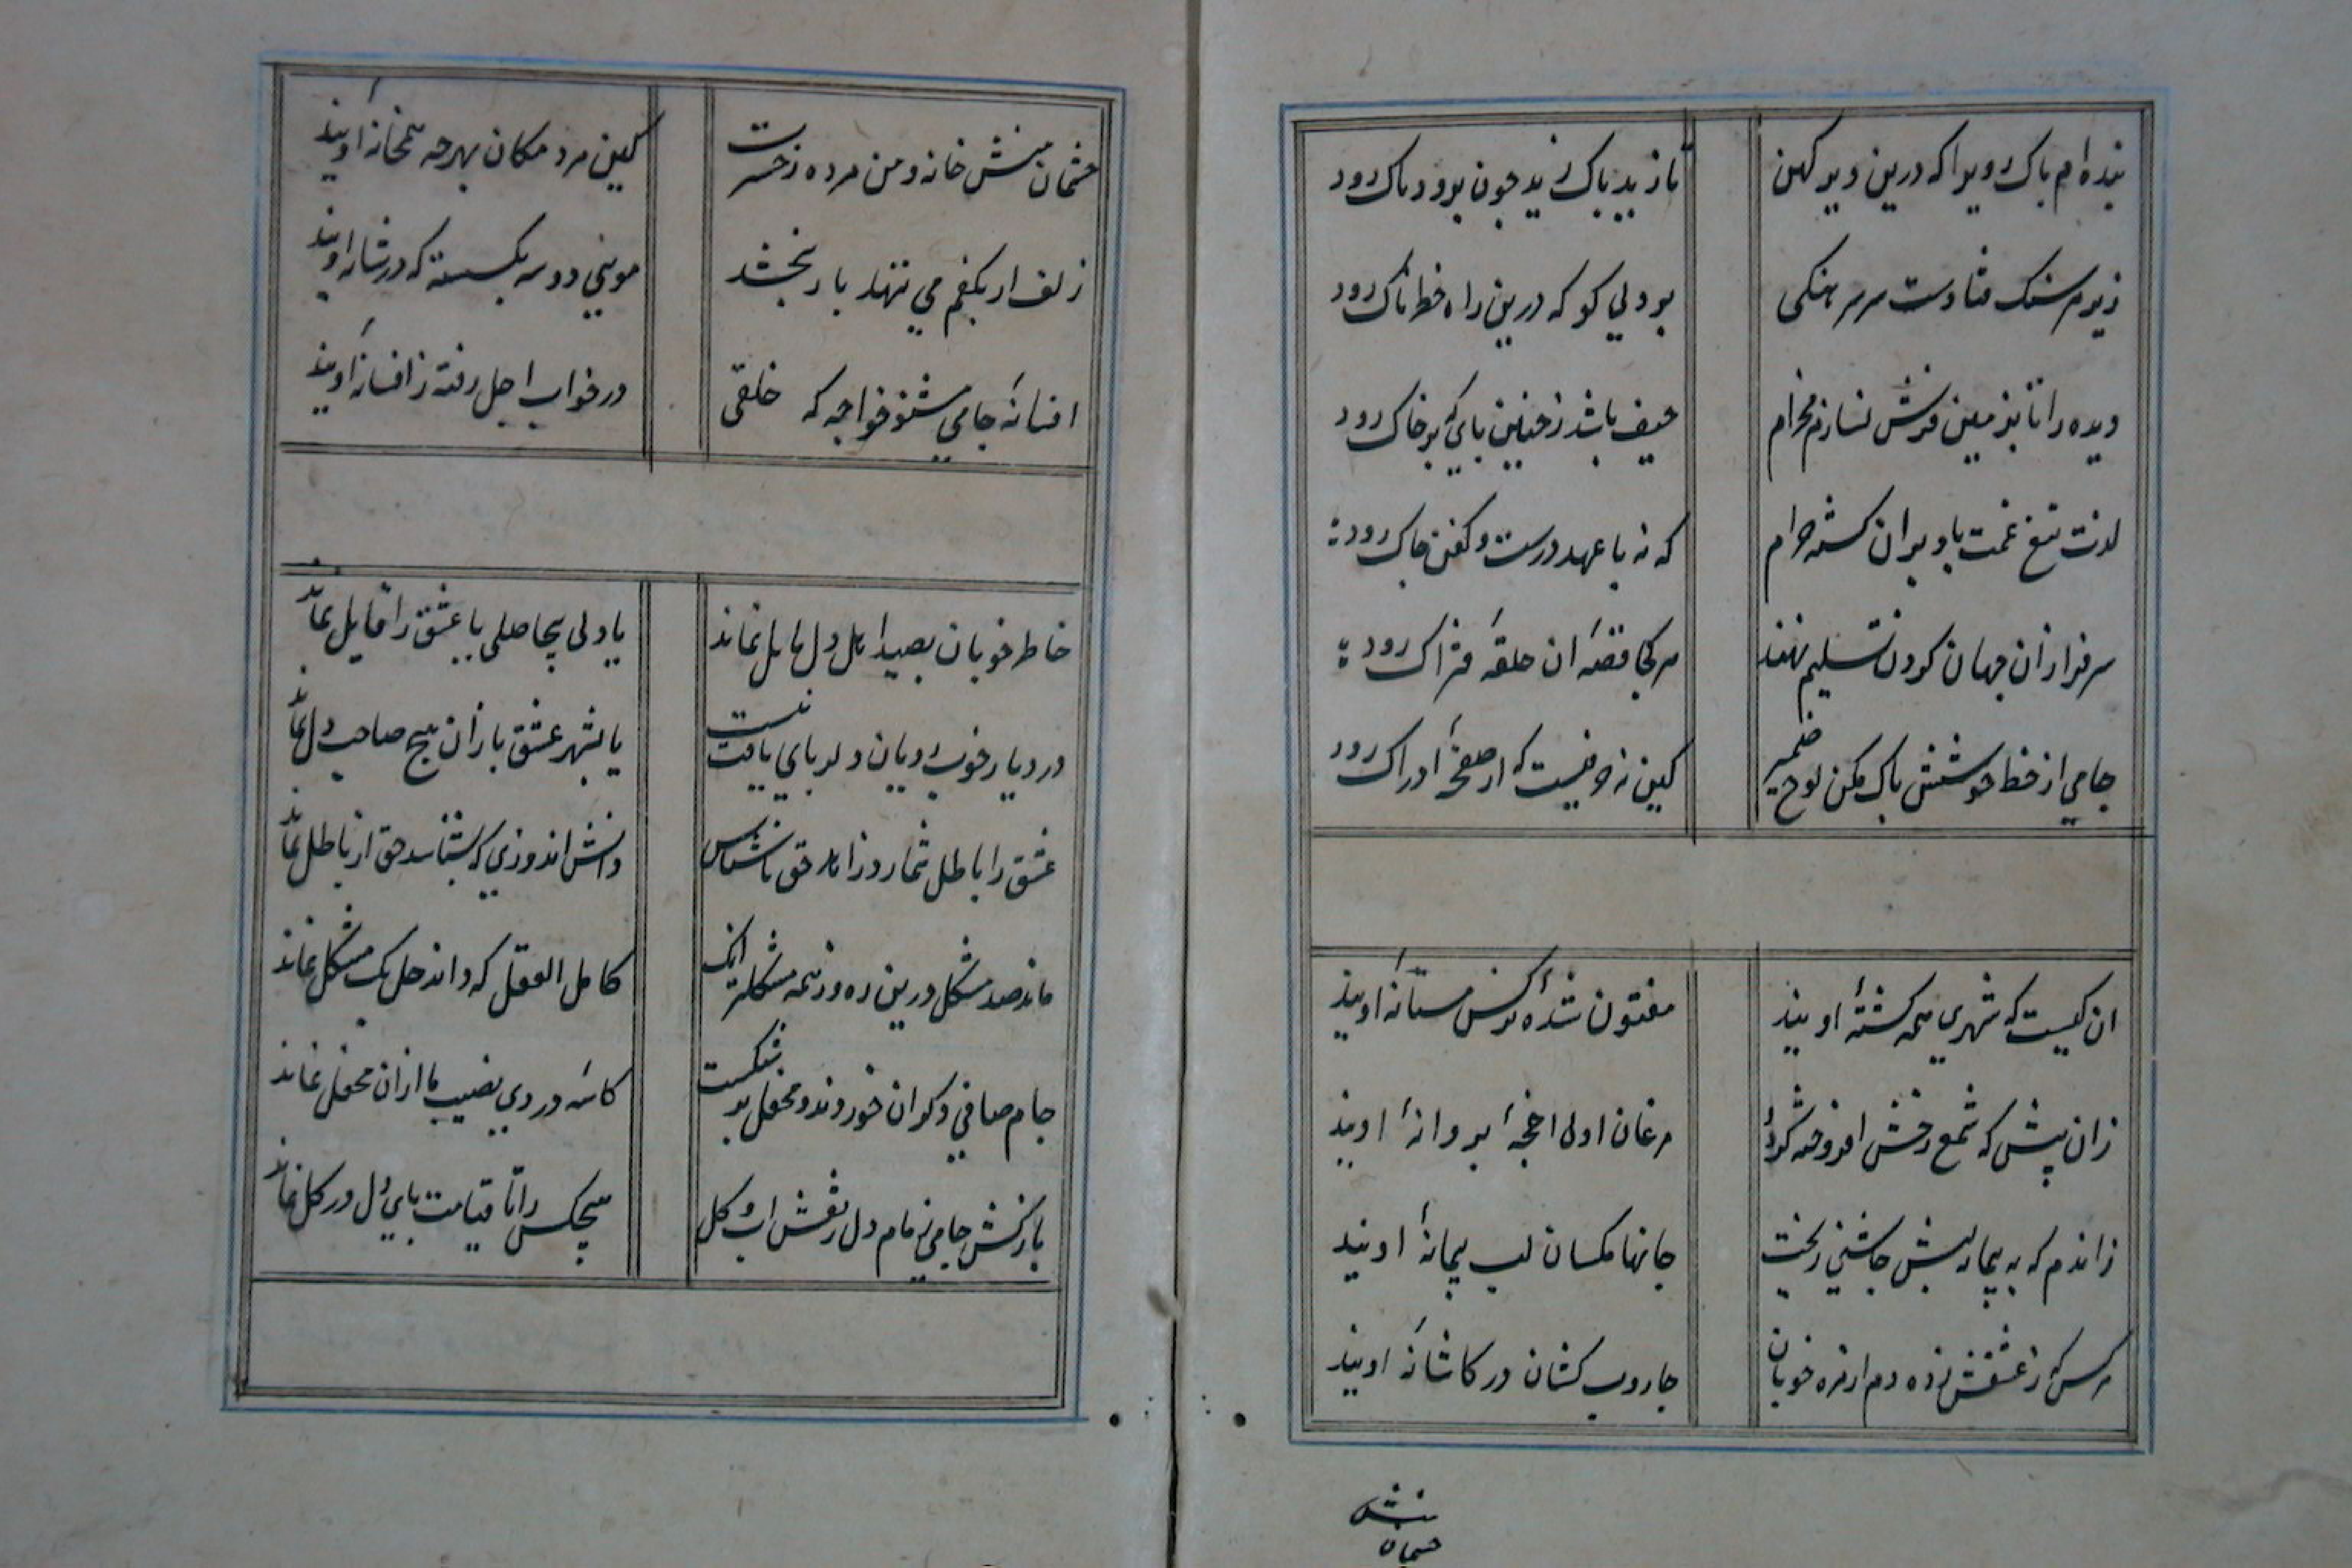 بنده ام پاک رویرا که درین دیر کهن
تا زید پاک زید چون برود پاک رود
زیر هر سنک فتادست سر سرهنکی
بو دلی کو که درین راه خطرناک رود
دیده را تا بزمین فرش نسازم مخرام
حیف باشد ز چنین پای که بر خاک رود
لذت تیغ غمت باد بر ان کشته حرام
که نه با عهد درست و کفن چاک رود
سرفرازان جهان کردن تسلیم نهند
هر کجا قصهٔ ان حلقهٔ فتراک رود
جامی از خط خوشش پاک مکن لوح ضمیر
کین نه حرفیست که از صفحهٔ ادراک رود
ان کیست که شهری همه کشتهٔ اویند
مفتون شده نرکس مستانهٔ اویند
زان پیش که شمع رخش افروخته کردد
مرغان اولی اجنحهٔ پروانهٔ اویند
زاندم که به پیمانه لبش چاشنی ریخت
جانها مکسان لب پیمانهٔ اویند
هر کس که ز عشقش زده دم از مژه خوبان
جاروب کشان در کاشانهٔ اویند
منش
چشمان
چشمان منش خانه و من مرده ز حسرت
کین مردمکان بهر چه همخانهٔ اویند
زلف ار بکفم می ننهد باد ببخشد
مویی دو سه بکسسته که در شانهٔ اویند
افسانهٔ جامی مشنو خواجه که خلقی
در خواب اجل رفته ز افسانهٔ اویند
خاطر خوبان بصید اهل دل مایل نماند
یا دلی بیحاصلی با عشق را قایل نماند
در دیار خوب رویان دلربایی یافت نیست
یا بشهر عشق بازان هیچ صاحب دل نماند
عشق را باطل شمارد زاهد حق ناشناس
دانش اندوزی که بشناسد حق از باطل نماند
ماند صد مشکل درین ره وز همه مشکلتر انک
کامل العقل که داند حل یک مشکل نماند
جام صافی دکران خوردند و محفل بر شکست
کاسهٔ دردی نصیب ما ازان محفل نماند
بازکش جامی زمام دل ز نقش اب و کل
هیچکس را تا قیامت پای دل در کل نماند